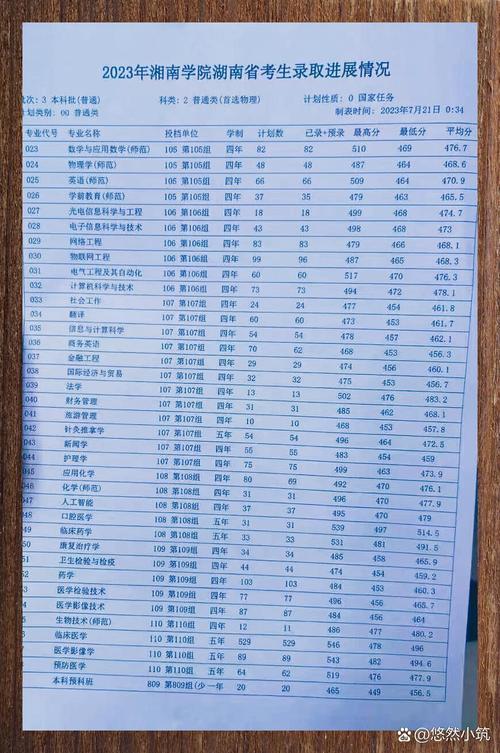 2023年湘南学院湖南省考生录取进展情况
批次: 3 本科批(普通) 科类: 2 普通类(首选物理) 计划性质: 0 国家任务
计划类别: 00 普通类 制表时间: 2023年7月21日 0:34
专业代号 专业名称 投档单位 学制 计划数 已录+预录 最高分 最低分 平均分
023 数学与应用数学(师范) 105 第105组 四年 82 82 510 469 476.7
024 物理学(师范) 105 第105组 四年 48 48 487 464 468.6
025 英语(师范) 105 第105组 四年 66 66 509 464 470.9
026 学前教育(师范) 105 第105组 四年 37 35 479 463 465.5
027 光电信息科学与工程 106 第106组 四年 18 18 499 468 474.7
028 电子信息科学与技术 106 第106组 四年 43 43 498 468 473
029 网络工程 106 第106组 四年 83 83 479 466 468.1
030 物联网工程 106 第106组 四年 99 96 487 465 468.3
031 电气工程及其自动化 106 第106组 四年 60 60 517 470 476.3
032 计算机科学与技术 106 第106组 四年 73 73 494 472 478.1
033 社会工作 107 第107组 四年 24 24 477 454 461.8
034 翻译 107 第107组 四年 60 60 473 453 461.7
035 信息与计算科学 107 第107组 四年 54 54 478 457 462.1
036 商务英语 107 第107组 四年 70 62 468 453 456.3
037 金融工程 107 第107组 四年 29 29 474 456 460.1
038 国际经济与贸易 107 第107组 四年 32 32 475 453 456.7
039 法学 107 第107组 四年 13 13 502 476 483.2
040 财务管理 107 第107组 四年 31 31 485 462 468.1
041 旅游管理 107 第107组 四年 10 10 468 453 457.8
042 针灸推拿学 107 第107组 五年 54 54 496 464 472.5
043 新闻学 107 第107组 四年 55 55 483 454 459
044 护理学 107 第107组 四年 75 75 499 463 473.9
045 应用化学 108 第108组 四年 80 69 492 470 476.1
046 化学(师范) 108 第108组 四年 31 31 496 470 477.9
047 人工智能 108 第108组 四年 31 31 495 470 479
048 口腔医学 108 第108组 五年 31 31 539 497 514.5
临床药学 108 第108组 五年 33 33 531 481 491.5
50 康复治疗学 109 第109组 四年 34 34 485 458 465.9
51 卫生检验与检疫 109 第109组 四年 44 44 474 454 459.2
52 药学 109 第109组 四年 103 103 484 454 460.3
医学检验技术 109 第109组 四年 77 77 496 456 465.7
医学影像技术 109 第109组 四年 87 87 484 464 468.4
生物技术(师范) 109 第109组 四年 12 11 486 477 480.2
临床医学 110 第110组 五年 529 529 546 478 496
医学影像学 110 第110组 五年 89 89 543 482 494.6
预防医学 110 第110组 五年 64 50 519 476 477.9
本科预科班 809 第809组(少 一年 20 20 465 449 456.5
百家号/悠然小筑